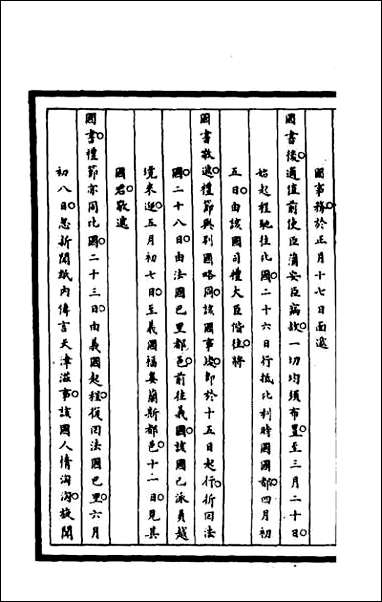 國事務於正月十七日面遞
國書後適值前使臣蒲安臣病故一切均須布置至三月二十日
始起程馳往比國二十六日行抵比利時國國都四月初
五日由該國司禮大臣偕往將
國書敬遞禮節與別國略同該國事竣即於十五日起行折回法
國二十八日由法國巴里都邑前往義國該國已派員越
境來迎五月初七日至義國福婁蘭斯都邑十二日見其
國君敬遞
國書禮節亦同比國二十三日由義國起程復回法國巴里六月
初八日忽新聞紙內傳言天津滋事該國人情洶洶旋聞